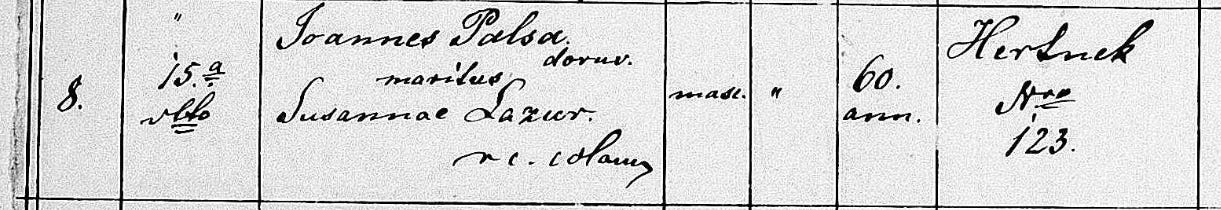 8.
"
15.a
Joannes Palsa
maritus
Susannae Lazur.
r c. colonus
masc.
"
60.
ann.
Hertnek
Nro
123.